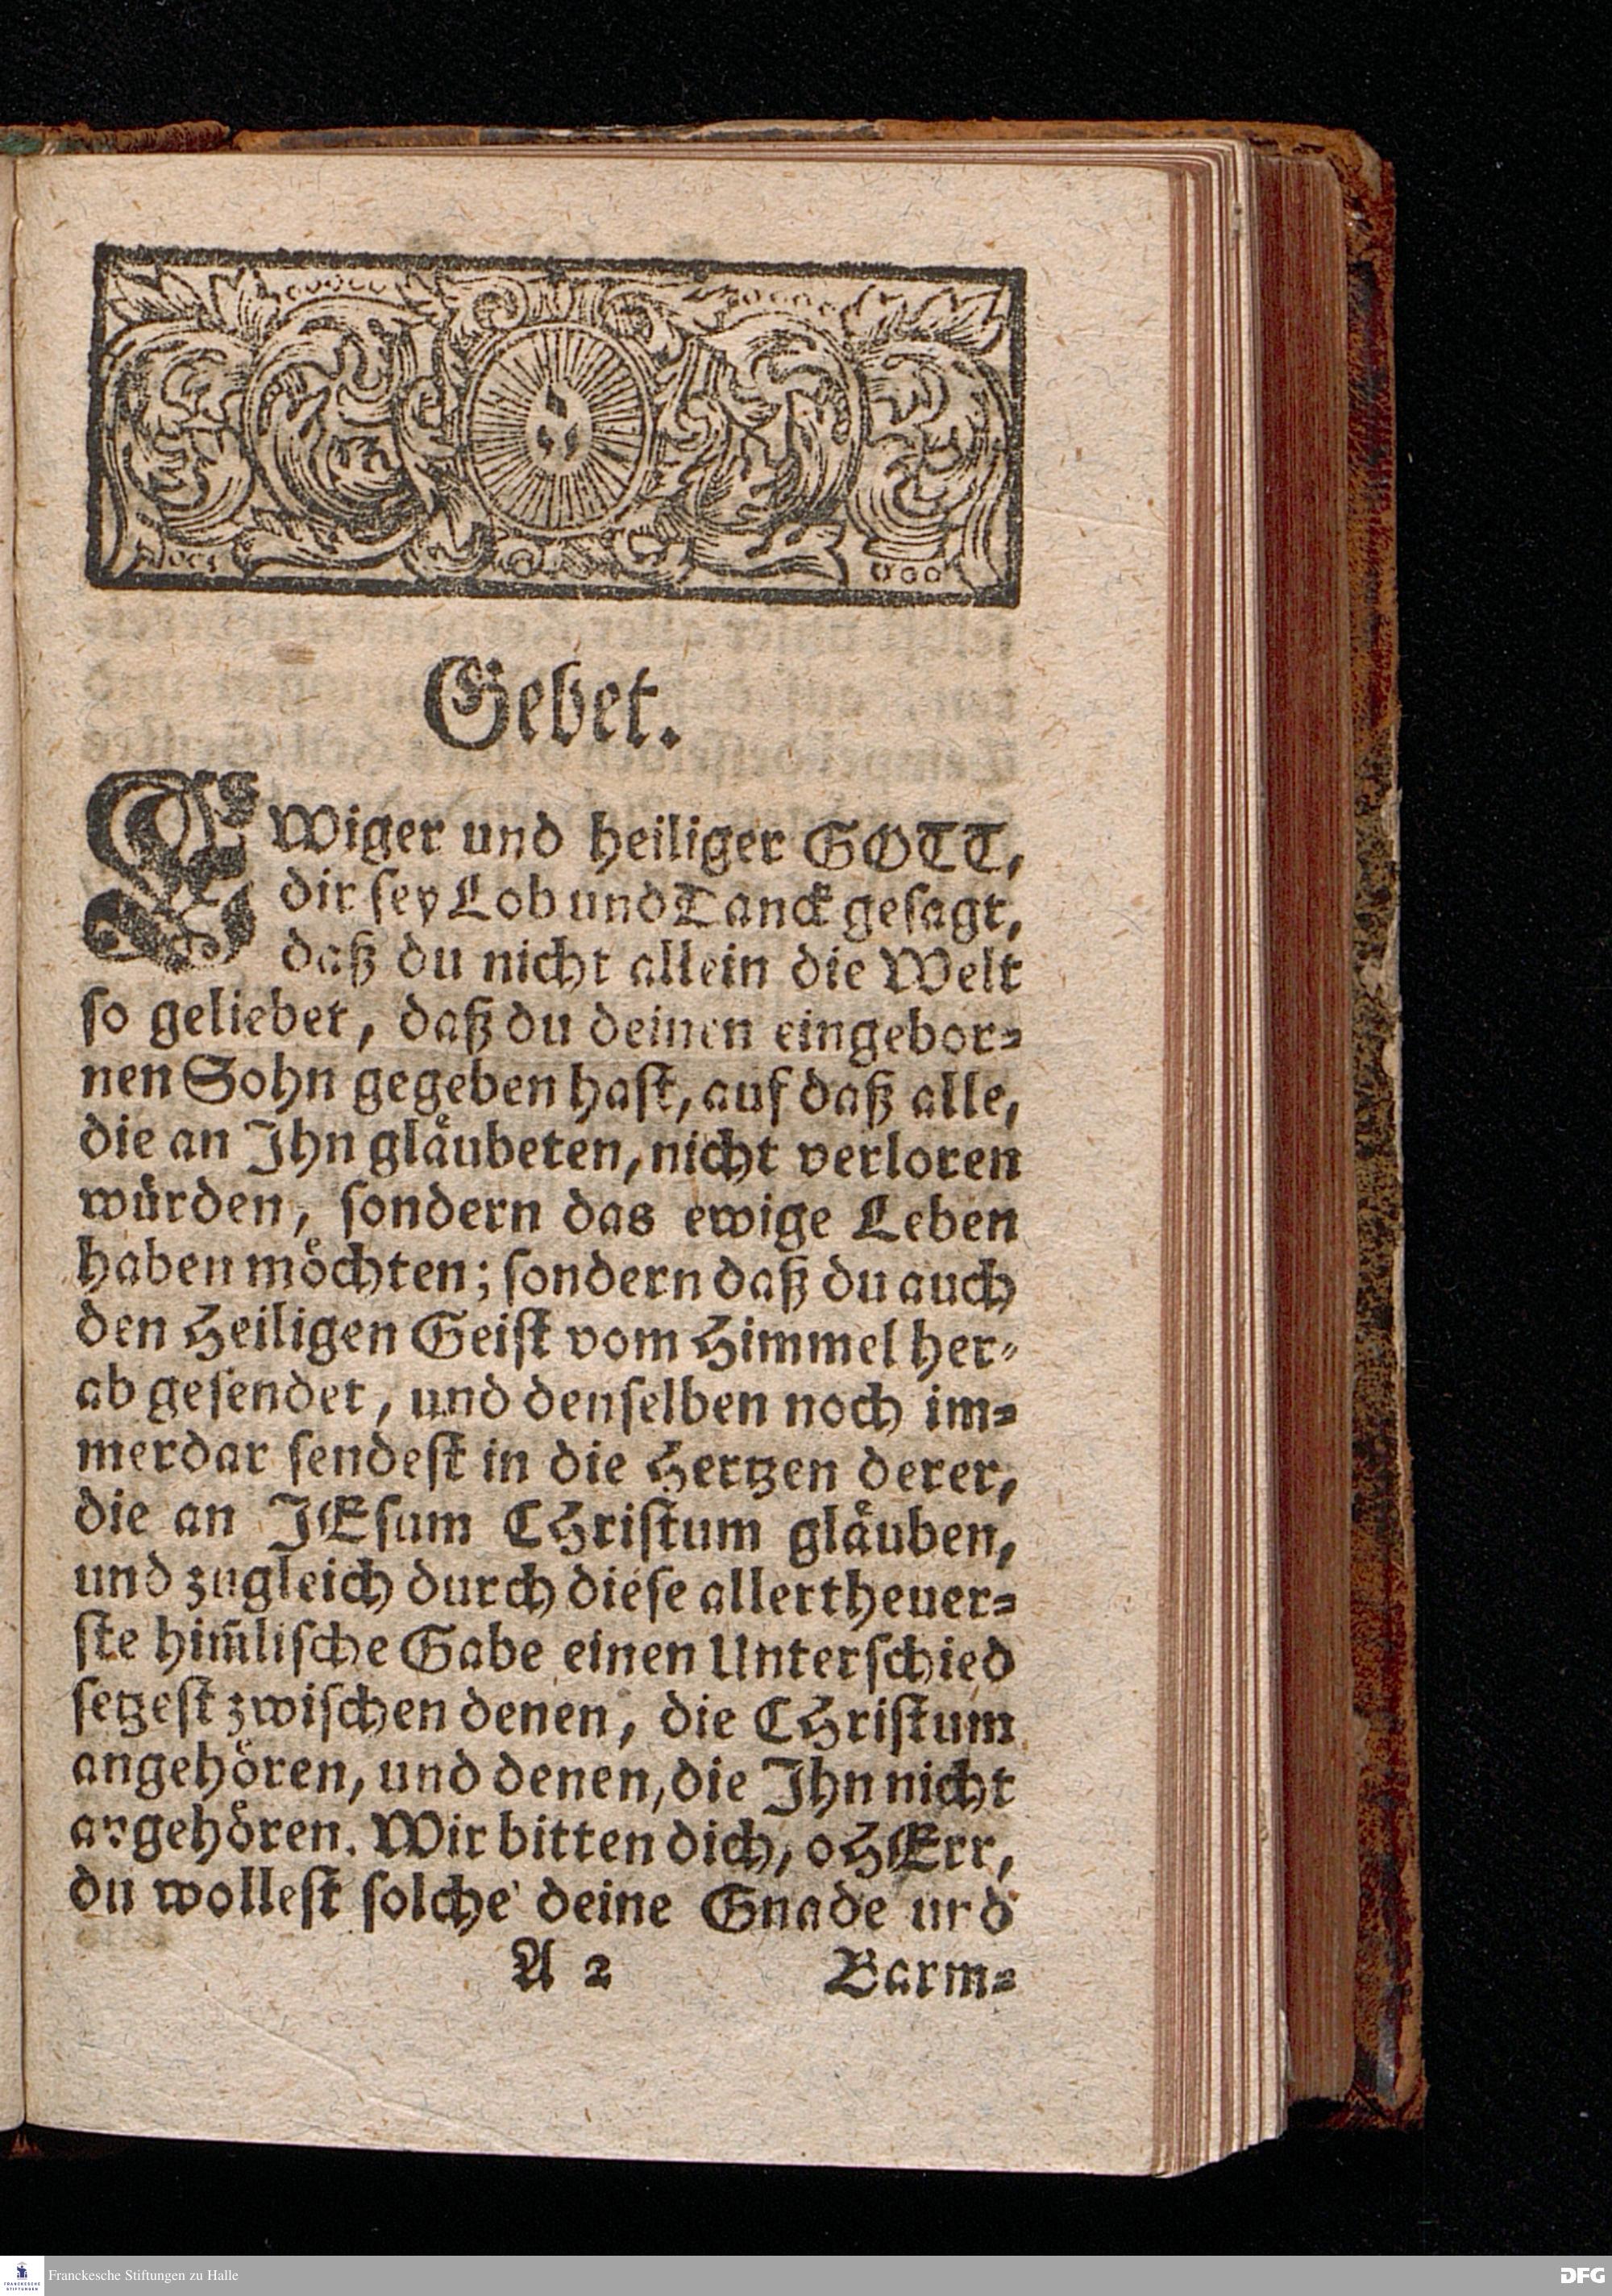 Gebet.
EWiger und heiliger GOTT,
dir sey Lob und Danck gesagt,
daß du nicht allein die Welt
so geliebet, daß du deinen eingebor=
nen Sohn gegeben hast, auf daß alle,
die an Ihn gläubeten, nicht verloren
würden, sondern das ewige Leben
haben möchten; sondern daß du auch
den Heiligen Geist vom Himmel her=
ab gesendet, und denselben noch im=
merdar sendest in die Hertzen derer,
die an JEsum CHristum gläuben,
und zugleich durch diese allertheuer=
ste him̃lische Gabe einen Unterschied
setzest zwischen denen, die CHristum
angehören, und denen, die Ihn nicht
angehören. Wir bitten dich, o HErr,
du wollest solche deine Gnade und
A 2 Barm=
Franckesche Stiftungen zu Halle
DFG